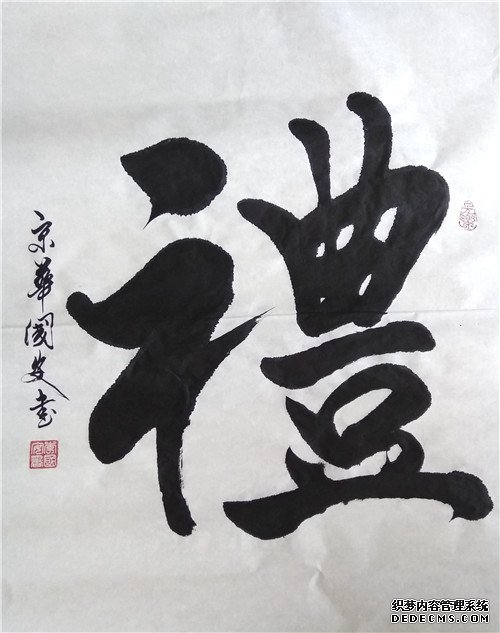 禮
京華國安書
织梦内容管理系统
DEDECMS.COM